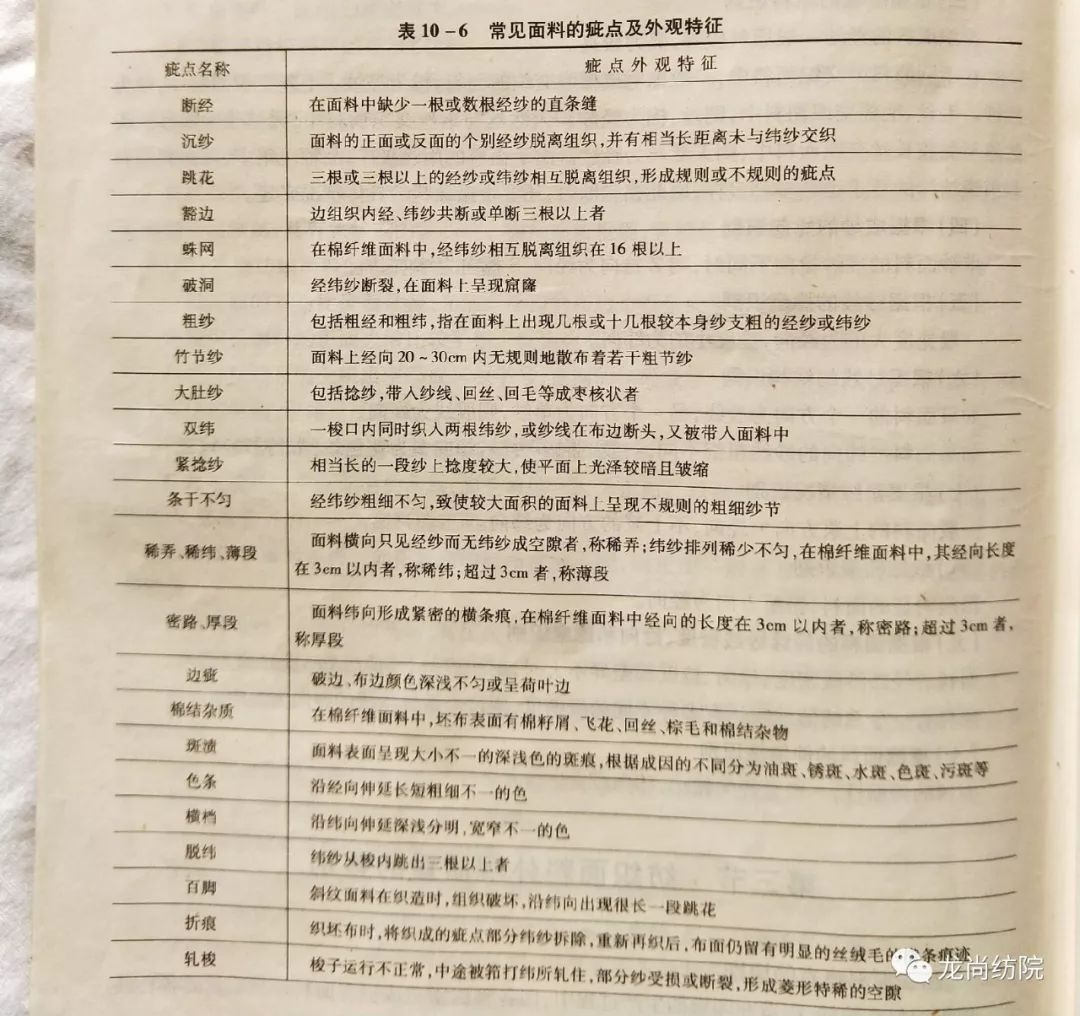 表 10-6 常见面料的疵点及外观特征
疵点名称 疵点外观特征
断经 在面料中缺少一根或数根经纱的直条缝
沉纱 面料的正面或反面的个别经纱脱离组织,并有相当长距离未与纬纱交织
跳花 三根或三根以上的经纱或纬纱相互脱离组织,形成规则或不规则的疵点
豁边 边组织内经、纬纱共断或单断三根以上者
蛛网 在棉纤维面料中,经纬纱相互脱离组织在 16 根以上
破洞 经纬纱断裂,在面料上呈现窟窿
粗纱 包括粗经和粗纬,指在面料上出现几根或十几根较本身纱支粗的经纱或纬纱
竹节纱 面料上经向 20~30cm 内无规则地散布着若干粗节纱
大肚纱 包括捻纱,带入纱线、回丝、回毛等成枣核状者
双纬 一梭口内同时织入两根纬纱,或纱线在布边断头,又被带入面料中
紧捻纱 相当长的一段纱上捻度较大,使平面上光泽较暗且皱缩
条干不匀 经纬纱粗细不匀,致使较大面积的面料上呈现不规则的粗细纱节
稀弄、稀纬、薄段 面料横向只见经纱而无纬纱成空隙者,称稀弄;纬纱排列稀少不匀,在棉纤维面料中,其经向长度
在 3cm 以内者,称稀纬;超过 3cm 者,称薄段
密路、厚段 面料纬向形成紧密的横条痕,在棉纤维面料中经向的长度在 3cm 以内者,称密路;超过 3cm 者,
称厚段
边疵 破边、布边颜色深浅不匀或呈荷叶边
棉结杂质 在棉纤维面料中,坯布表面有棉籽屑、飞花、回丝、棕毛和棉结杂物
斑渍 面料表面呈现大小不一的深浅色的斑痕,根据成因的不同分为油斑、锈斑、水斑、色斑、污斑等
色条 沿经向伸延长短粗细不一的色
横档 沿纬向伸延深浅分明,宽窄不一的色
脱纬 纬纱从梭内跳出三根以上者
百脚 斜纹面料在织造时,组织破坏,沿纬向出现很长一段跳花
折痕 织坯布时,将织成的疵点部分纬纱拆除,重新再织后,布面仍留有明显的丝绒毛的条痕迹
轧梭 梭子运行不正常,中途被筘打纬所轧住,部分纱受损或断裂,形成菱形特稀的空隙
龙尚纺院